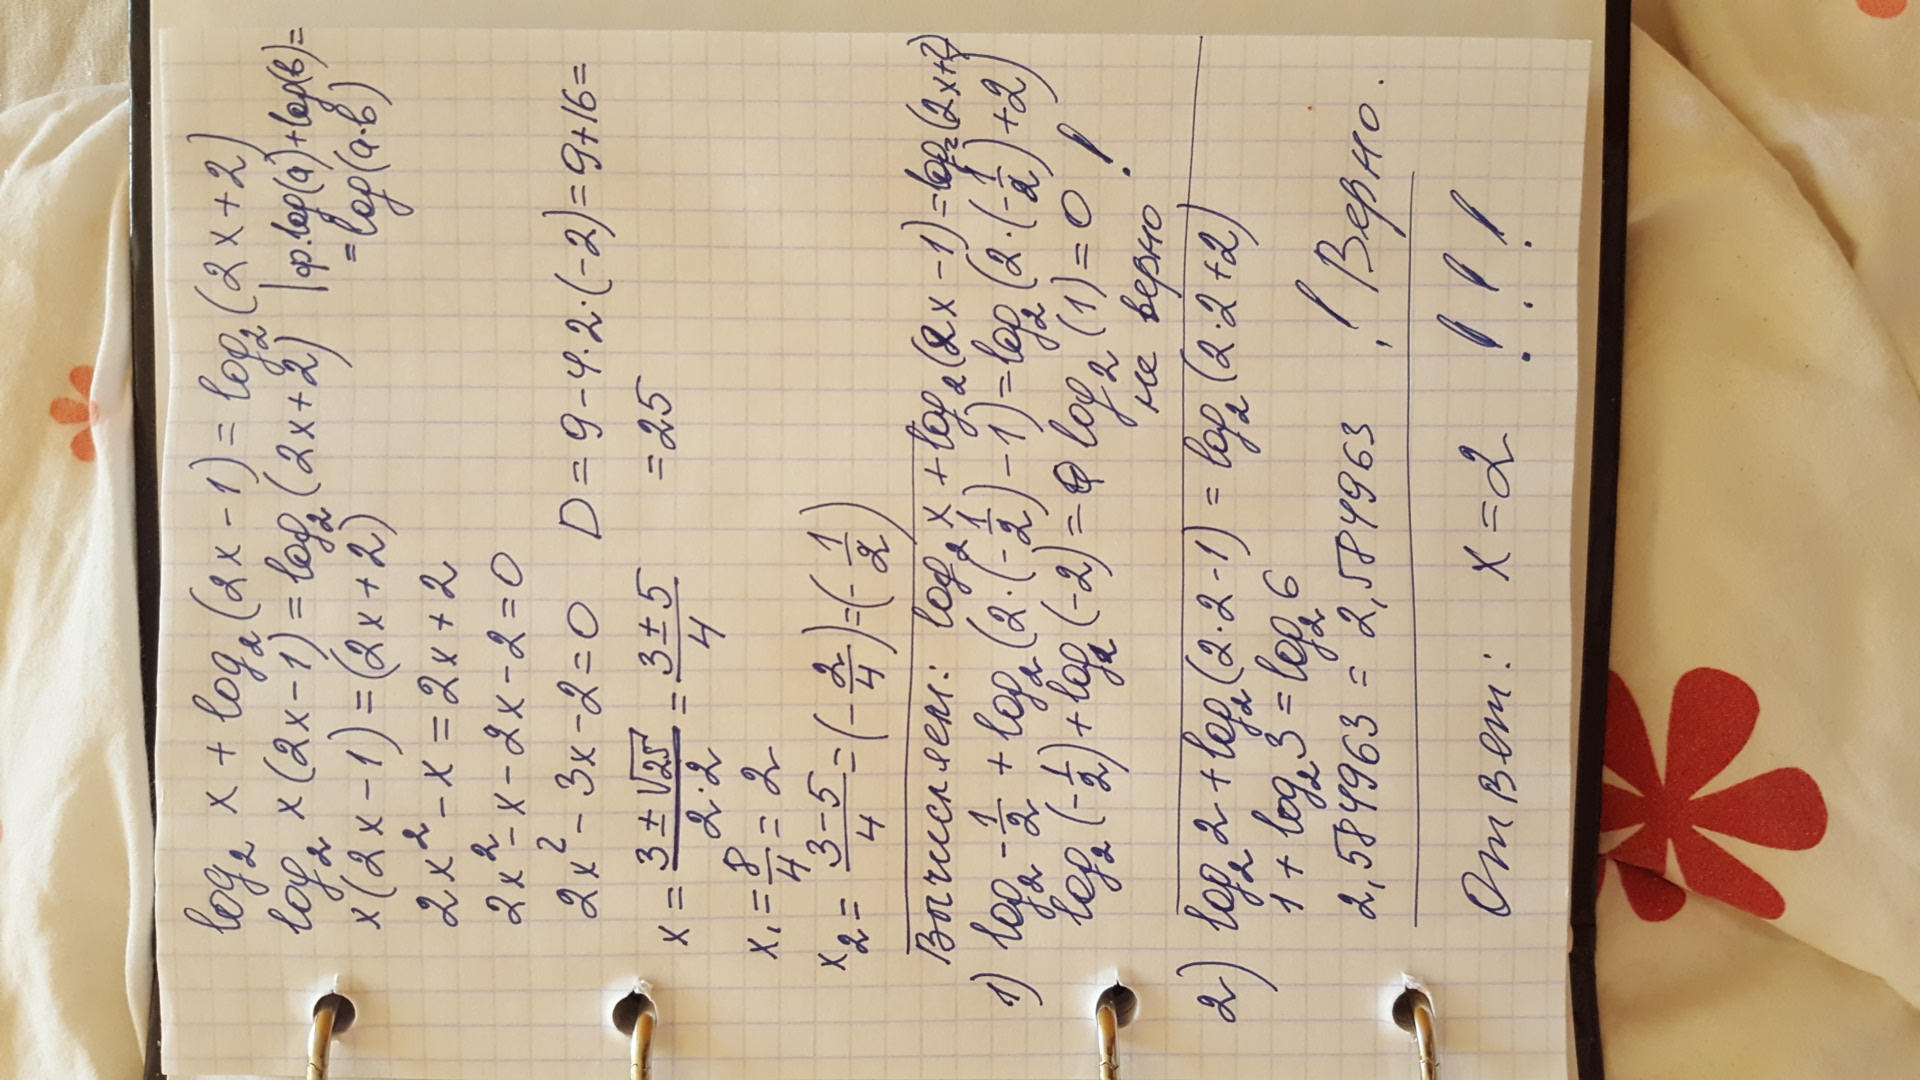 log₂ x + log₂(2x - 1) = log₂(2x + 2)
log₂ x(2x - 1) = log₂(2x + 2) | ф. log(a) + log(b) =
= log(a·b)
x(2x - 1) = (2x + 2)
2x² - x = 2x + 2
2x² - x - 2x - 2 = 0
2x² - 3x - 2 = 0 D = 9 - 4·2·(-2) = 9 + 16 =
= 25
x = (3 ± √25)/(2·2) = (3 ± 5)/4
x₁ = 8/4 = 2
x₂ = (3 - 5)/4 = (-2/4) = (-1/2)
Вычислели: log₂ x + log₂(2x - 1) = log₂(2x + 2)
1) log₂ -1/2 + log₂(2·(-1/2) - 1) = log₂(2·(-1/2) + 2)
log₂(-1/2) + log₂(-2) = log₂(1) = 0
не верно !
2) log₂ 2 + log₂(2·2 - 1) = log₂(2·2 + 2)
1 + log₂ 3 = log₂ 6
2,584963 = 2,584963 ! Верно.
Ответ: x = 2 !!!